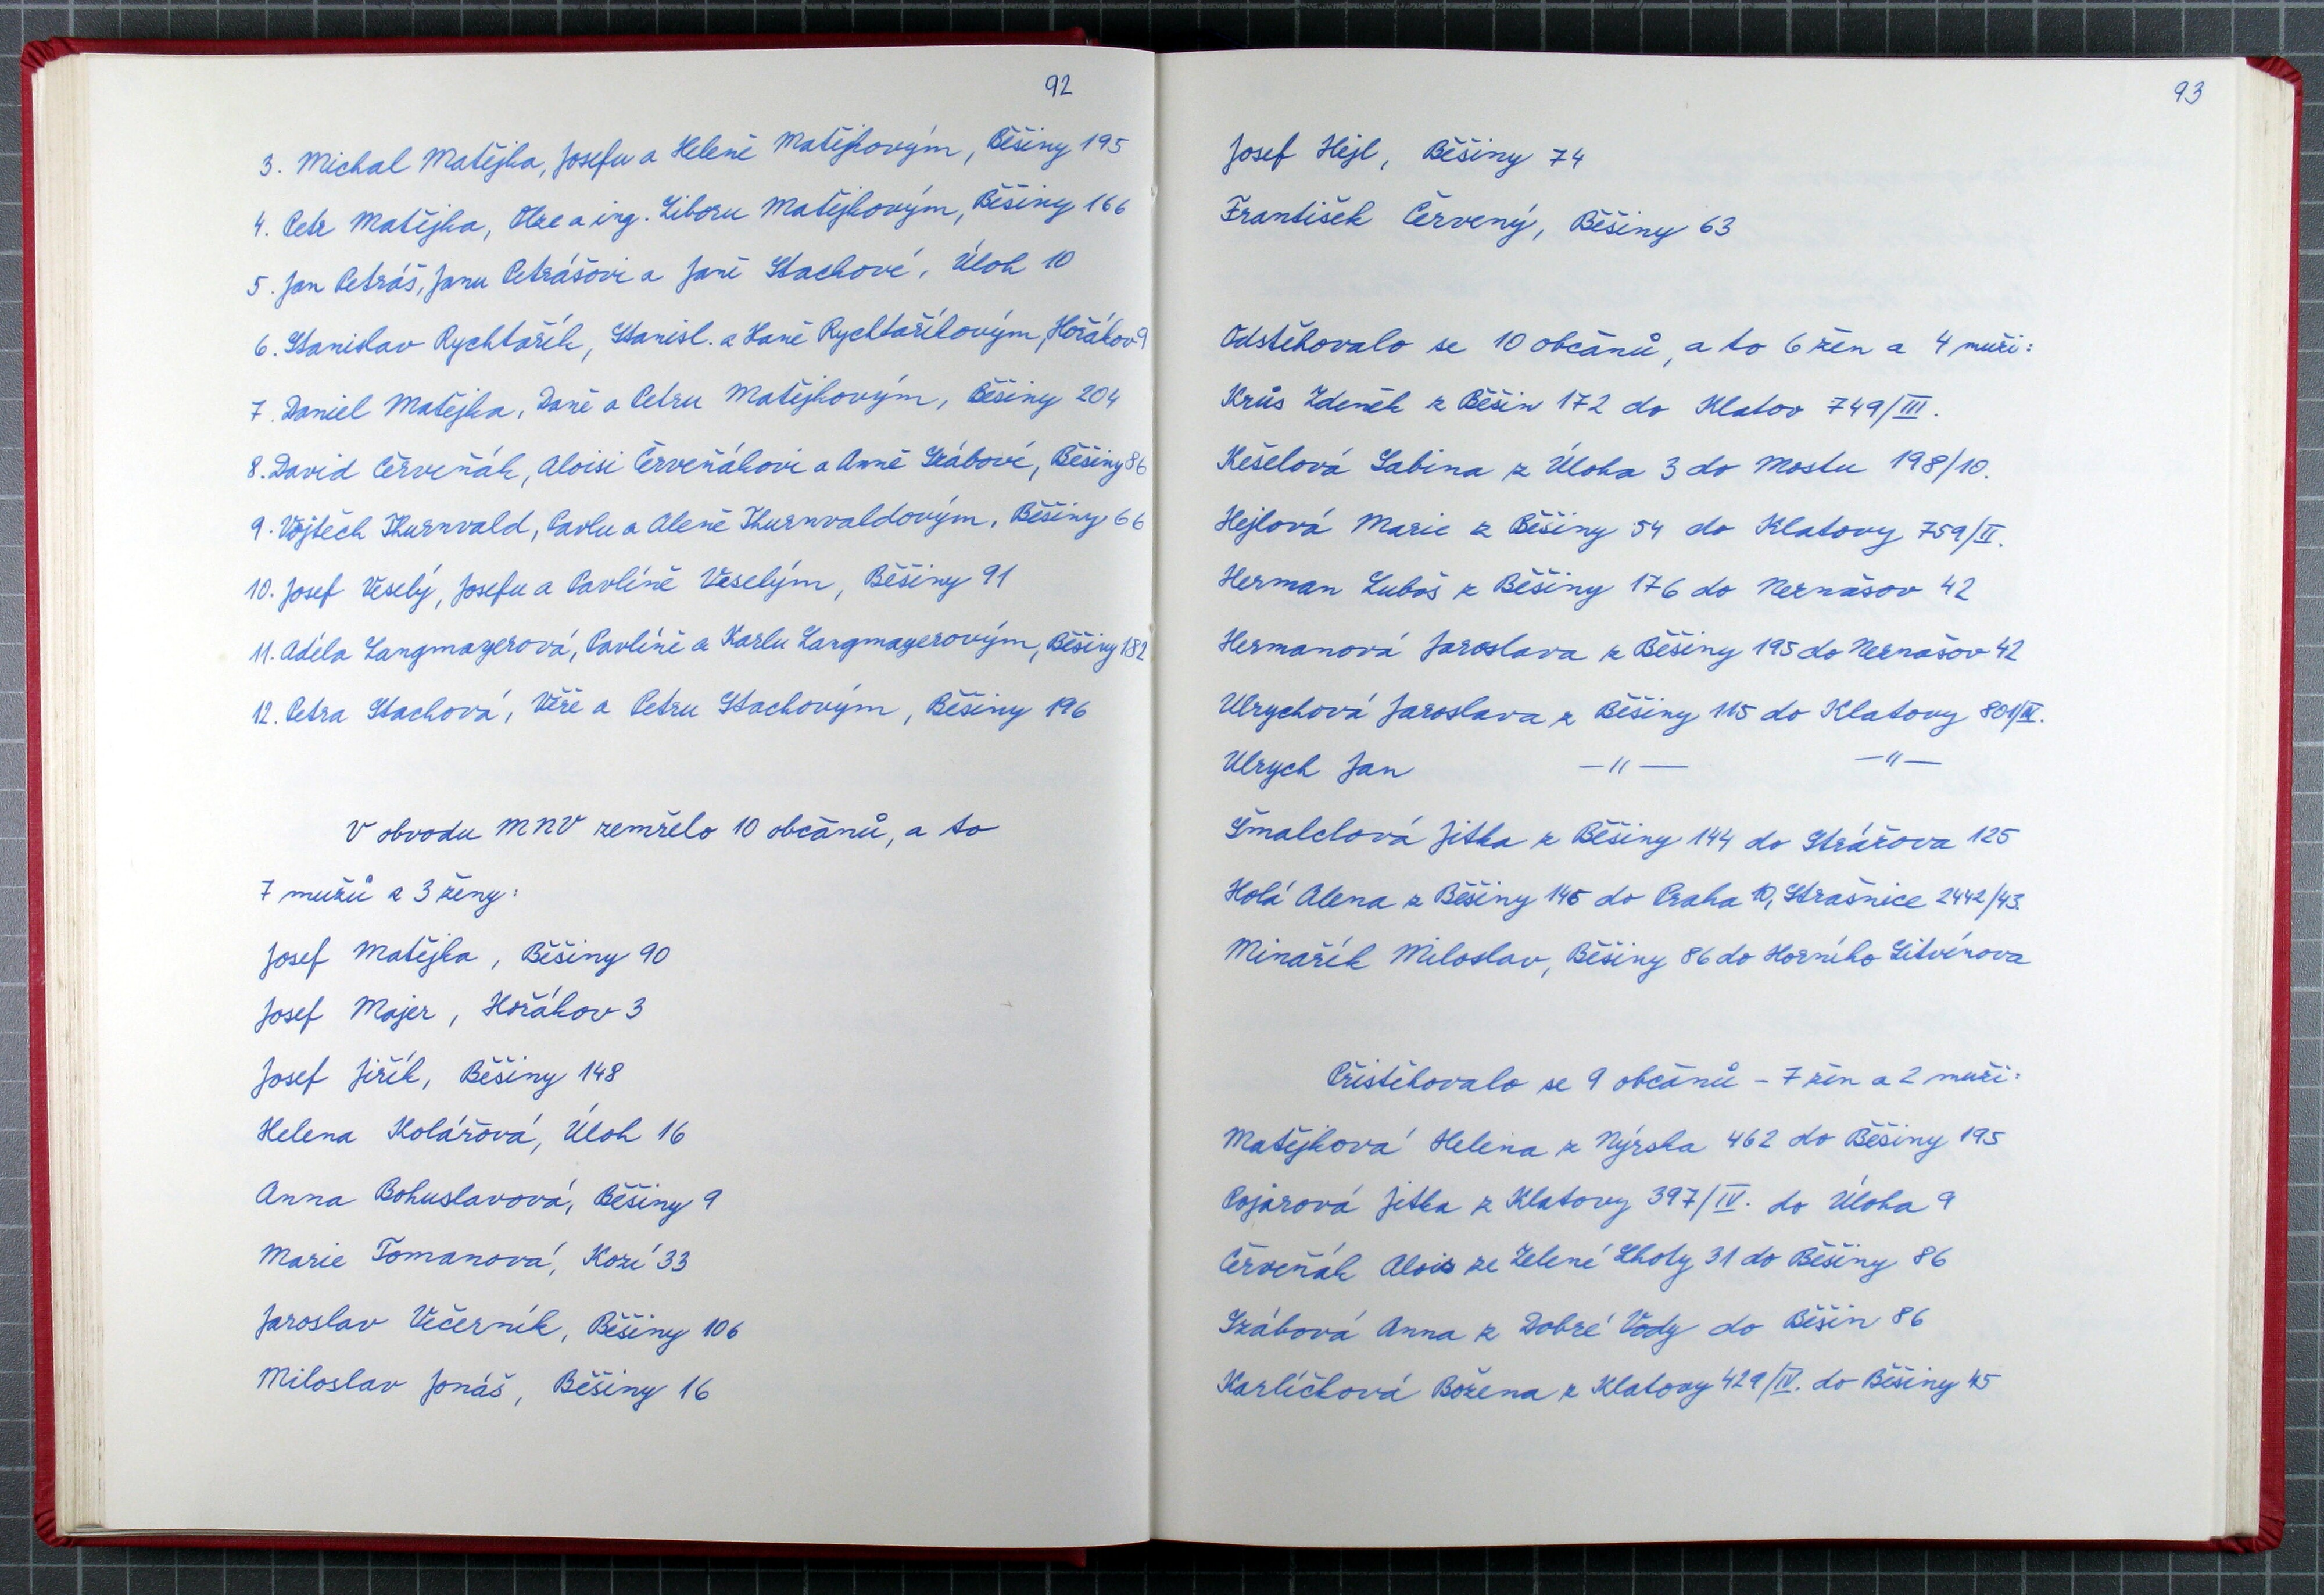 92
3. Michal Matějka, Josefu a Heleně Matějkovým, Běšiny 195
4. Petr Matějka, Olze a ing. Liboru Matějkovým, Běšiny 166
5. Jan Petráš, Janu Petrášovi a Janě Stachové, Úloh 10
6. Stanislav Rychtařík, Stanisl. a Haně Rychtaříkovým, Hořákov 9
7. Daniel Matějka, Daně a Petru Matějkovým, Běšiny 204
8. David Červeňák, Aloisi Červeňákovi a Anně Szábové, Běšiny 86
9. Vojtěch Thurnvald, Pavlu a Aleně Thurnvaldovým, Běšiny 66
10. Josef Veselý, Josefu a Pavlíně Veselým, Běšiny 91
11. Adéla Langmayerová, Pavlíně a Karlu Langmayerovým, Běšiny 182
12. Petra Stachová, Věře a Petru Stachovým, Běšiny 196
V obvodu MNV zemřelo 10 občanů, a to
7 mužů a 3 ženy:
Josef Matějka, Běšiny 90
Josef Majer, Hořákov 3
Josef Jiřík, Běšiny 148
Helena Kolářová, Úloh 16
Anna Bohuslavová, Běšiny 9
Marie Tomanová, Kozí 33
Jaroslav Večerník, Běšiny 106
Miloslav Jonáš, Běšiny 16
93
Josef Hejl, Běšiny 74
František Červený, Běšiny 63
Odstěhovalo se 10 občanů, a to 6 žen a 4 muži:
Krůs Zdeněk z Běšin 172 do Klatov 749/III.
Kešelová Sabina z Úloha 3 do Mostu 198/10.
Hejlová Marie z Běšiny 54 do Klatovy 759/II.
Herman Luboš z Běšiny 176 do Nernašov 42
Hermanová Jaroslava z Běšiny 195 do Nernašov 42
Ulrychová Jaroslava z Běšiny 115 do Klatovy 801/III.
Ulrych Jan —"— —"—
Šmalclová Jitka z Běšiny 144 do Strážova 125
Holá Alena z Běšiny 145 do Praha 10, Strašnice 2442/43.
Minařík Miloslav, Běšiny 86 do Horního Litvínova
Přistěhovalo se 9 občanů – 7 žen a 2 muži:
Matějková Helena z Nýrska 462 do Běšiny 195
Pojarová Jitka z Klatovy 397/IV. do Úloha 9
Červeňák Alois ze Zelené Lhoty 31 do Běšiny 86
Szábová Anna z Dobré Vody do Běšin 86
Karlíčková Božena z Klatovy 429/IV. do Běšiny 45